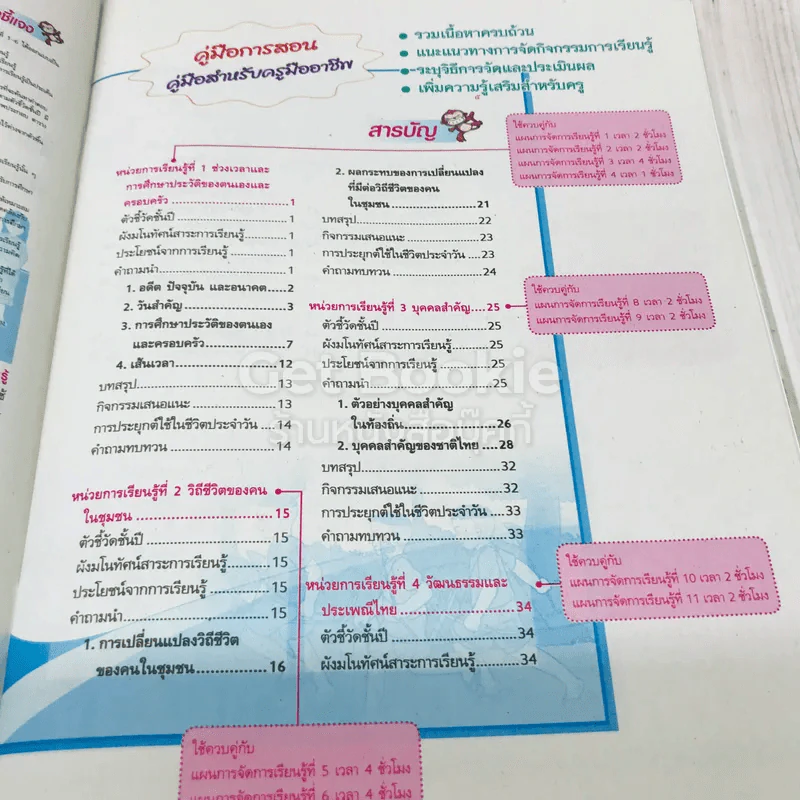 คู่มือการสอน
คู่มือสำหรับครูมืออาชีพ
• รวมเนื้อหาครบถ้วน
• แนะแนวทางการจัดกิจกรรมการเรียนรู้
• ระบุวิธีการวัดและประเมินผล
• เพิ่มความรู้เสริมสำหรับครู
สารบัญ
ใช้ควบคู่กับ
แผนการจัดการเรียนรู้ที่ 1 เวลา 2 ชั่วโมง
แผนการจัดการเรียนรู้ที่ 2 เวลา 2 ชั่วโมง
แผนการจัดการเรียนรู้ที่ 3 เวลา 4 ชั่วโมง
แผนการจัดการเรียนรู้ที่ 4 เวลา 1 ชั่วโมง
หน่วยการเรียนรู้ที่ 1 ช่วงเวลาและ
การศึกษาประวัติของตนเองและ
ครอบครัว ................................ 1
ตัวชี้วัดชั้นปี ............................. 1
ผังมโนทัศน์สาระการเรียนรู้ ............ 1
ประโยชน์จากการเรียนรู้ ................ 1
คำถามนำ ................................ 1
1. อดีต ปัจจุบัน และอนาคต.....2
2. วันสำคัญ ............................3
3. การศึกษาประวัติของตนเอง
และครอบครัว.....................7
4. เส้นเวลา ...........................12
บทสรุป.................................13
กิจกรรมเสนอแนะ ....................13
การประยุกต์ใช้ในชีวิตประจำวัน ....14
คำถามทบทวน ........................14
หน่วยการเรียนรู้ที่ 2 วิถีชีวิตของคน
ในชุมชน ............................. 15
ตัวชี้วัดชั้นปี .......................... 15
ผังมโนทัศน์สาระการเรียนรู้......... 15
ประโยชน์จากการเรียนรู้ ............ 15
คำถามนำ.............................. 15
1. การเปลี่ยนแปลงวิถีชีวิต
ของคนในชุมชน................... 16
2. ผลกระทบของการเปลี่ยนแปลง
ที่มีต่อวิถีชีวิตของคน
ในชุมชน ...........................21
บทสรุป................................22
กิจกรรมเสนอแนะ ...................23
การประยุกต์ใช้ในชีวิตประจำวัน ....23
คำถามทบทวน .......................24
หน่วยการเรียนรู้ที่ 3 บุคคลสำคัญ....25
ตัวชี้วัดชั้นปี ..........................25
ผังมโนทัศน์สาระการเรียนรู้.........25
ประโยชน์จากการเรียนรู้ ............25
คำถามนำ .............................25
1. ตัวอย่างบุคคลสำคัญ
ในท้องถิ่น..........................26
2. บุคคลสำคัญของชาติไทย ....28
บทสรุป................................32
กิจกรรมเสนอแนะ ...................32
การประยุกต์ใช้ในชีวิตประจำวัน ....33
คำถามทบทวน .......................33
หน่วยการเรียนรู้ที่ 4 วัฒนธรรมและ
ประเพณีไทย ........................ 34
ตัวชี้วัดชั้นปี .......................... 34
ผังมโนทัศน์สาระการเรียนรู้........... 34
ใช้ควบคู่กับ
แผนการจัดการเรียนรู้ที่ 8 เวลา 2 ชั่วโมง
แผนการจัดการเรียนรู้ที่ 9 เวลา 2 ชั่วโมง
ใช้ควบคู่กับ
แผนการจัดการเรียนรู้ที่ 10 เวลา 2 ชั่วโมง
แผนการจัดการเรียนรู้ที่ 11 เวลา 2 ชั่วโมง
ใช้ควบคู่กับ
แผนการจัดการเรียนรู้ที่ 5 เวลา 4 ชั่วโมง
แผนการจัดการเรียนรู้ที่ 6 เวลา 4 ชั่วโมง
Get Bookie
ร้านหนังสือบุ๊คกี้